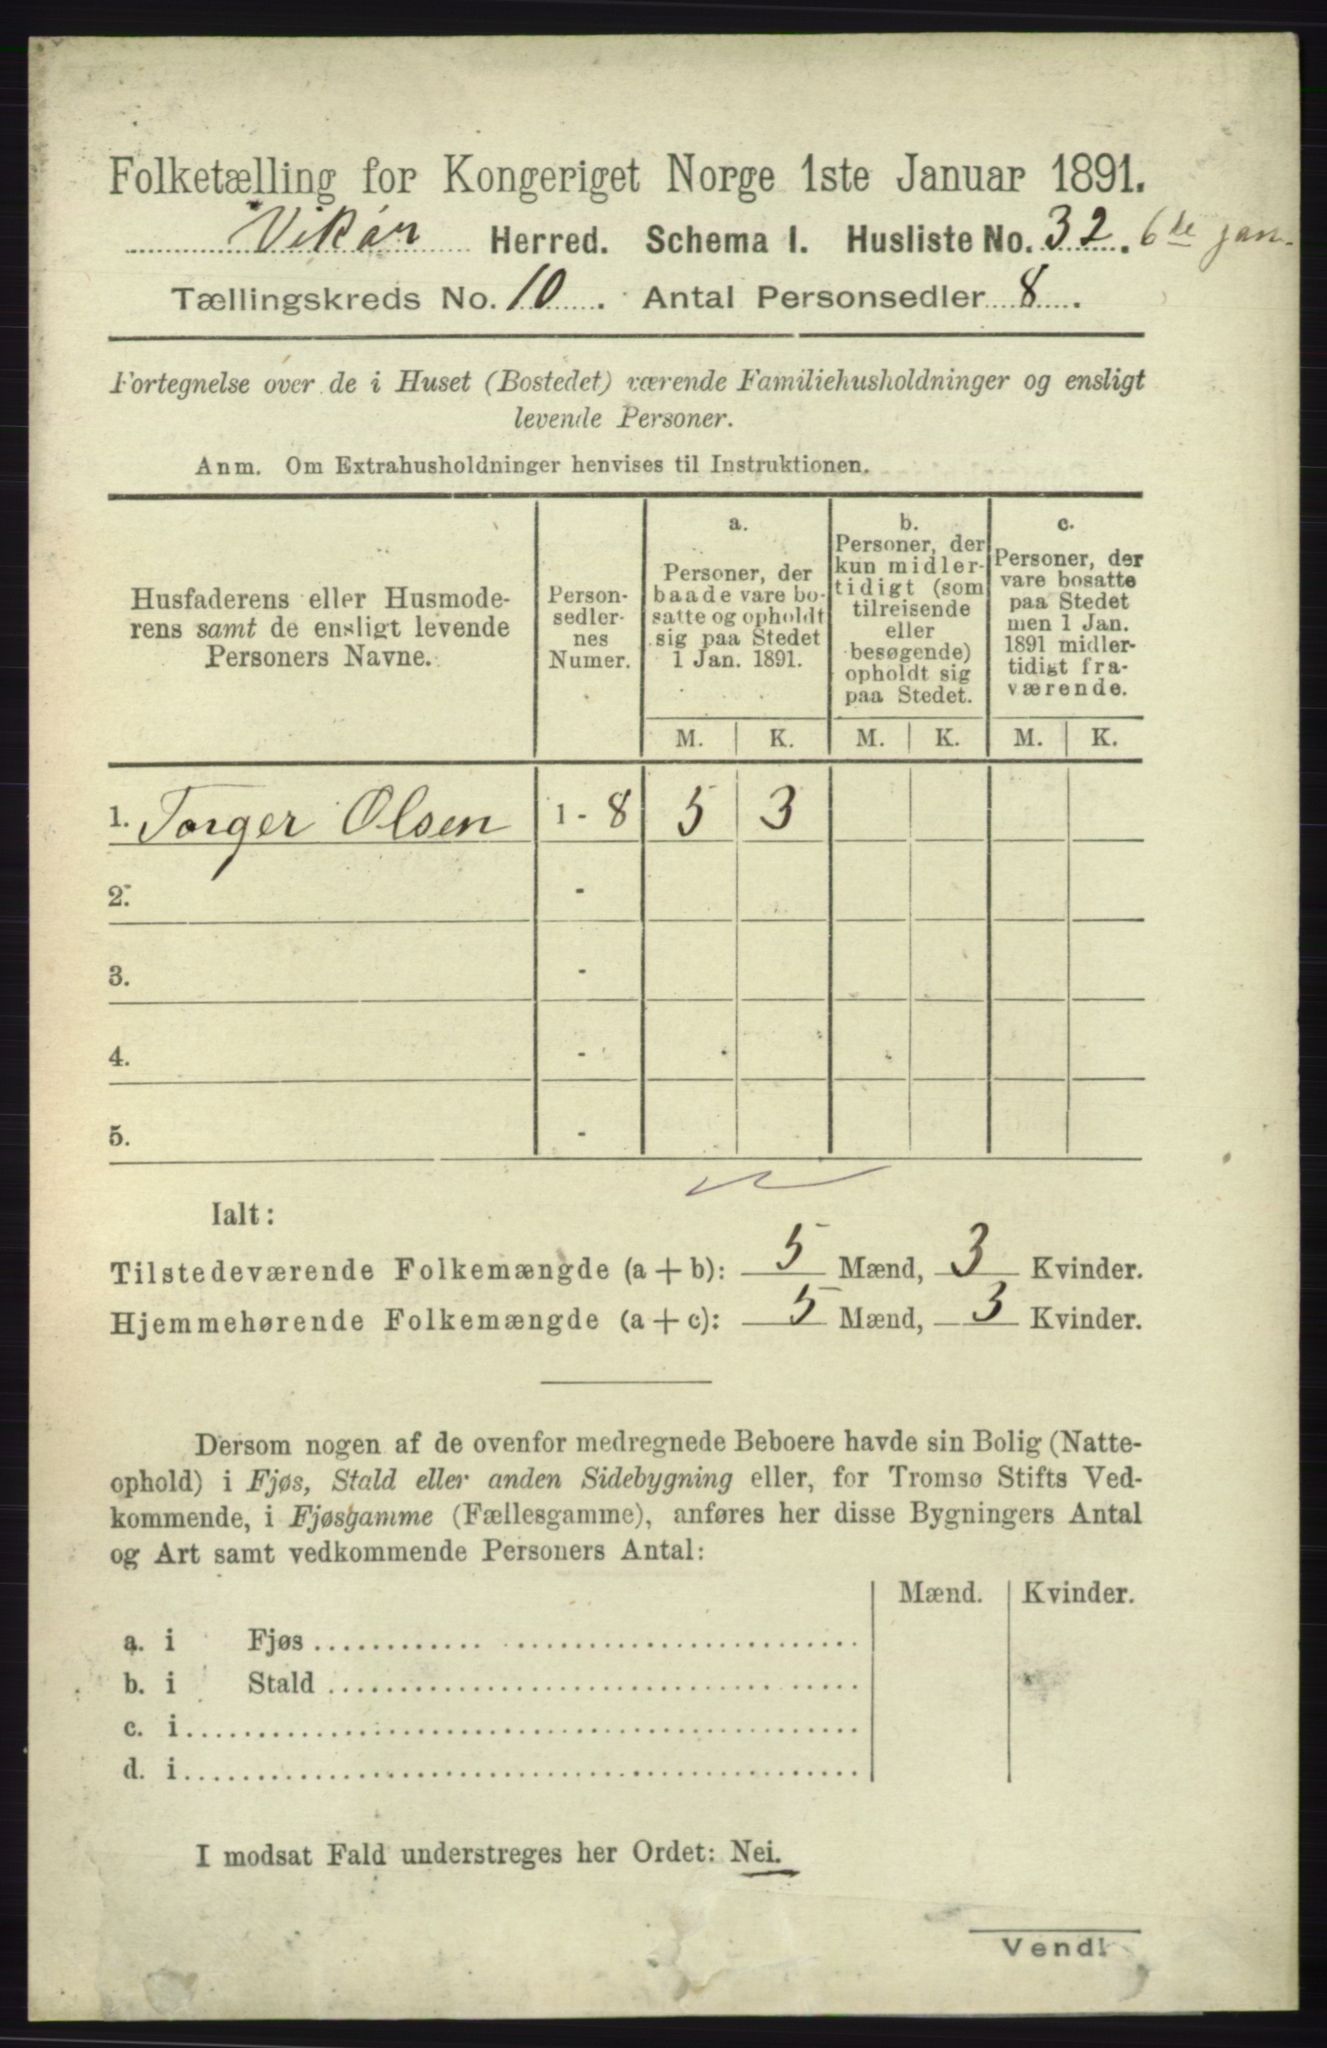 Folketælling for Kongeriget Norge 1ste Januar 1891.
Vikør Herred. Schema I. Husliste No. 32. 6te jan.
Tællingskreds No. 10. Antal Personsedler 8.
Fortegnelse over de i Huset (Bostedet) værende Familiehusholdninger og ensligt
levende Personer.
Anm. Om Extrahusholdninger henvises til Instruktionen.
Husfaderens eller Husmode-
rens samt de ensligt levende
Personers Navne.
Person-
sedler-
nes
Numer.
a.
Personer, der
baade vare bo-
satte og opholdt
sig paa Stedet
1 Jan. 1891.
b.
Personer, der
kun midler-
tidigt (som
tilreisende
eller
besøgende)
opholdt sig
paa Stedet.
c.
Personer, der
vare bosatte
paa Stedet
men 1 Jan.
1891 midler-
tidigt fra-
værende.
M. K. M. K. M. K.
1. Torger Olsen 1 - 8 5 3
2. -
3. -
4. -
5. -
Ialt:
Tilstedeværende Folkemængde (a + b): 5 Mænd, 3 Kvinder.
Hjemmehørende Folkemængde (a + c): 5 Mænd, 3 Kvinder.
Dersom nogen af de ovenfor medregnede Beboere havde sin Bolig (Natte-
ophold) i Fjøs, Stald eller anden Sidebygning eller, for Tromsø Stifts Ved-
kommende, i Fjøsgamme (Fællesgamme), anføres her disse Bygningers Antal
og Art samt vedkommende Personers Antal:
Mænd. Kvinder.
a. i Fjøs
b. i Stald
c. i
d. i
I modsat Fald understreges her Ordet: Nei.
Vend!